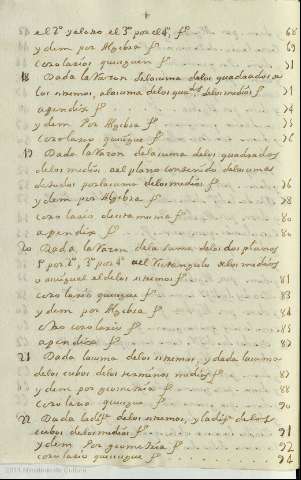 el 2º y el 3º por el 4º, fº 68
y dem por Algebra fº 69
corolarios quinquem fº 71
18 Dada la razon dela suma delos quadrados de
los estremos, ala suma delos quados delos medios fº 71
apendix fº 74
y dem Por Algebra fº 75
corolario quinque fº 76
19 Dada la razon dela suma delos quadrados
delos medios al plano contenido delas sumas
por la suma delos medios fº 76
y dem por Algebra fº 78
corolario fº 80
apendix fº 80
20 Dada la razon dela suma delos dos planos
1º por 2º, 3º por 4º al Rectangulo delos medios
o al delos estremos fº 81
corolario quinque fº 83
y dem por Algebra fº 84
corolarios fº 85
apendix fº 87
21 Dada la suma delos estremos, y dada la suma
delos cubos delos terminos medios fº 87
y dem por geometria fº 88
corolario quinque fº 90
22 Dada la difª delos estremos, y la difª delos
cubos delos medios fº 91
y dem Por geometria fº 92
corolario quinque fº 94
2011 Ministerio de Cultura